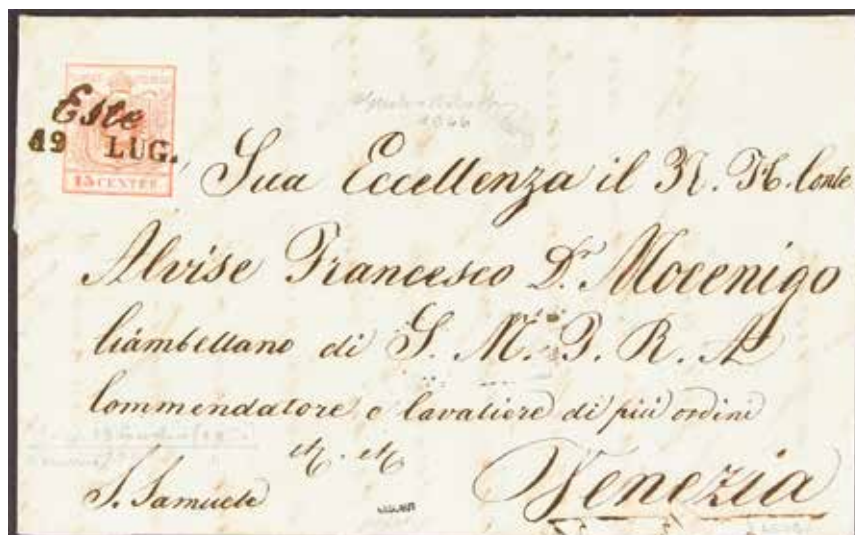 Este
19 LUG.
15 CENTES
Sua Eccellenza il N. H. Conte
Alvise Francesco Dr. Mocenigo
Ciambellano di S. M. I. R. A
Commendatore e Cavaliere di più ordini
S. Samuele
Venezia